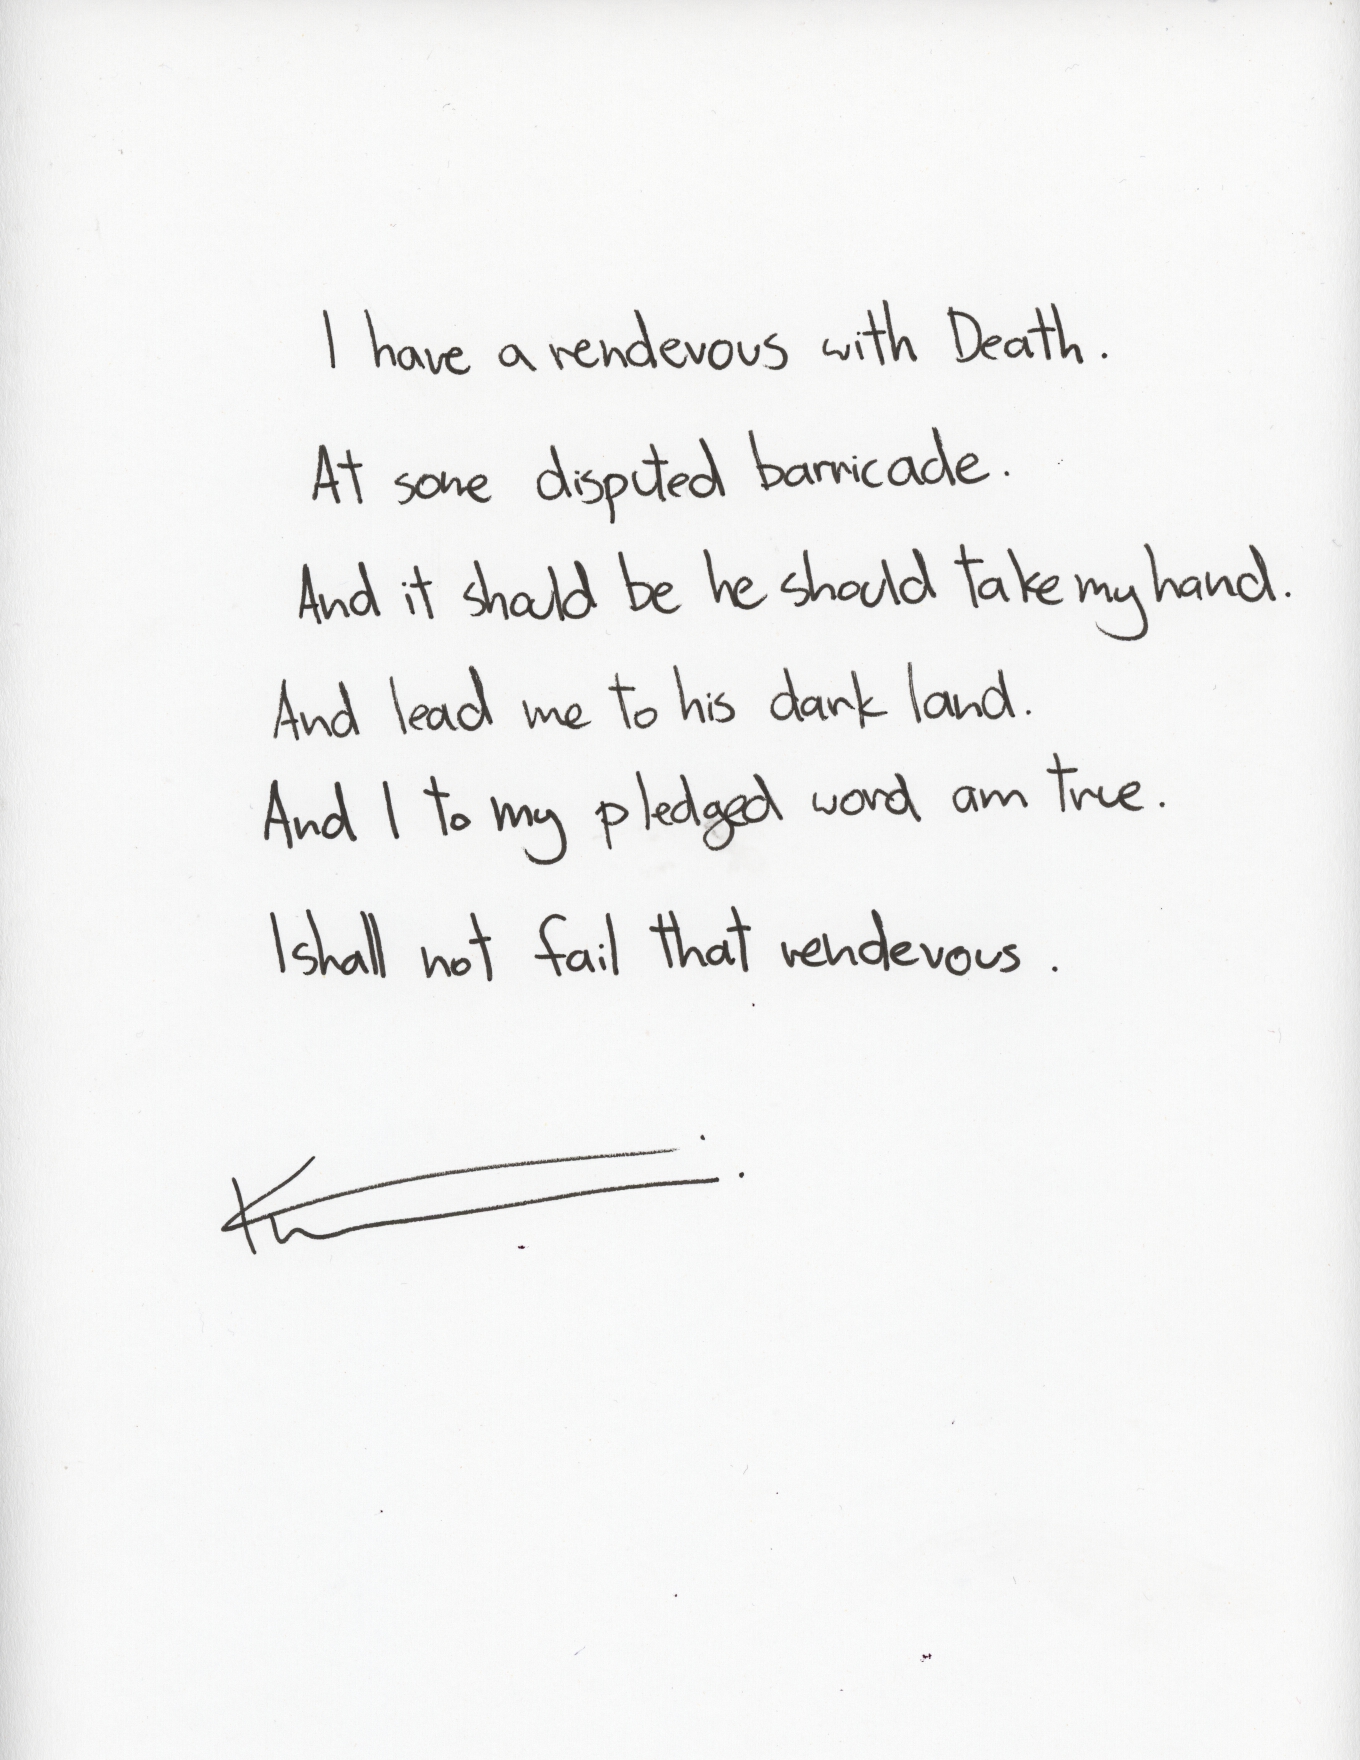 I have a rendevous with Death.
At some disputed barricade.
And it should be he should take my hand.
And lead me to his dark land.
And I to my pledged word am true.
I shall not fail that rendevous.